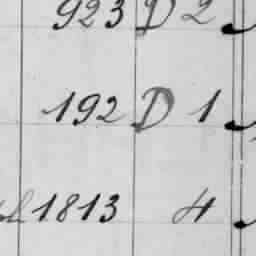 923 D 2
192 D 1
1813 4